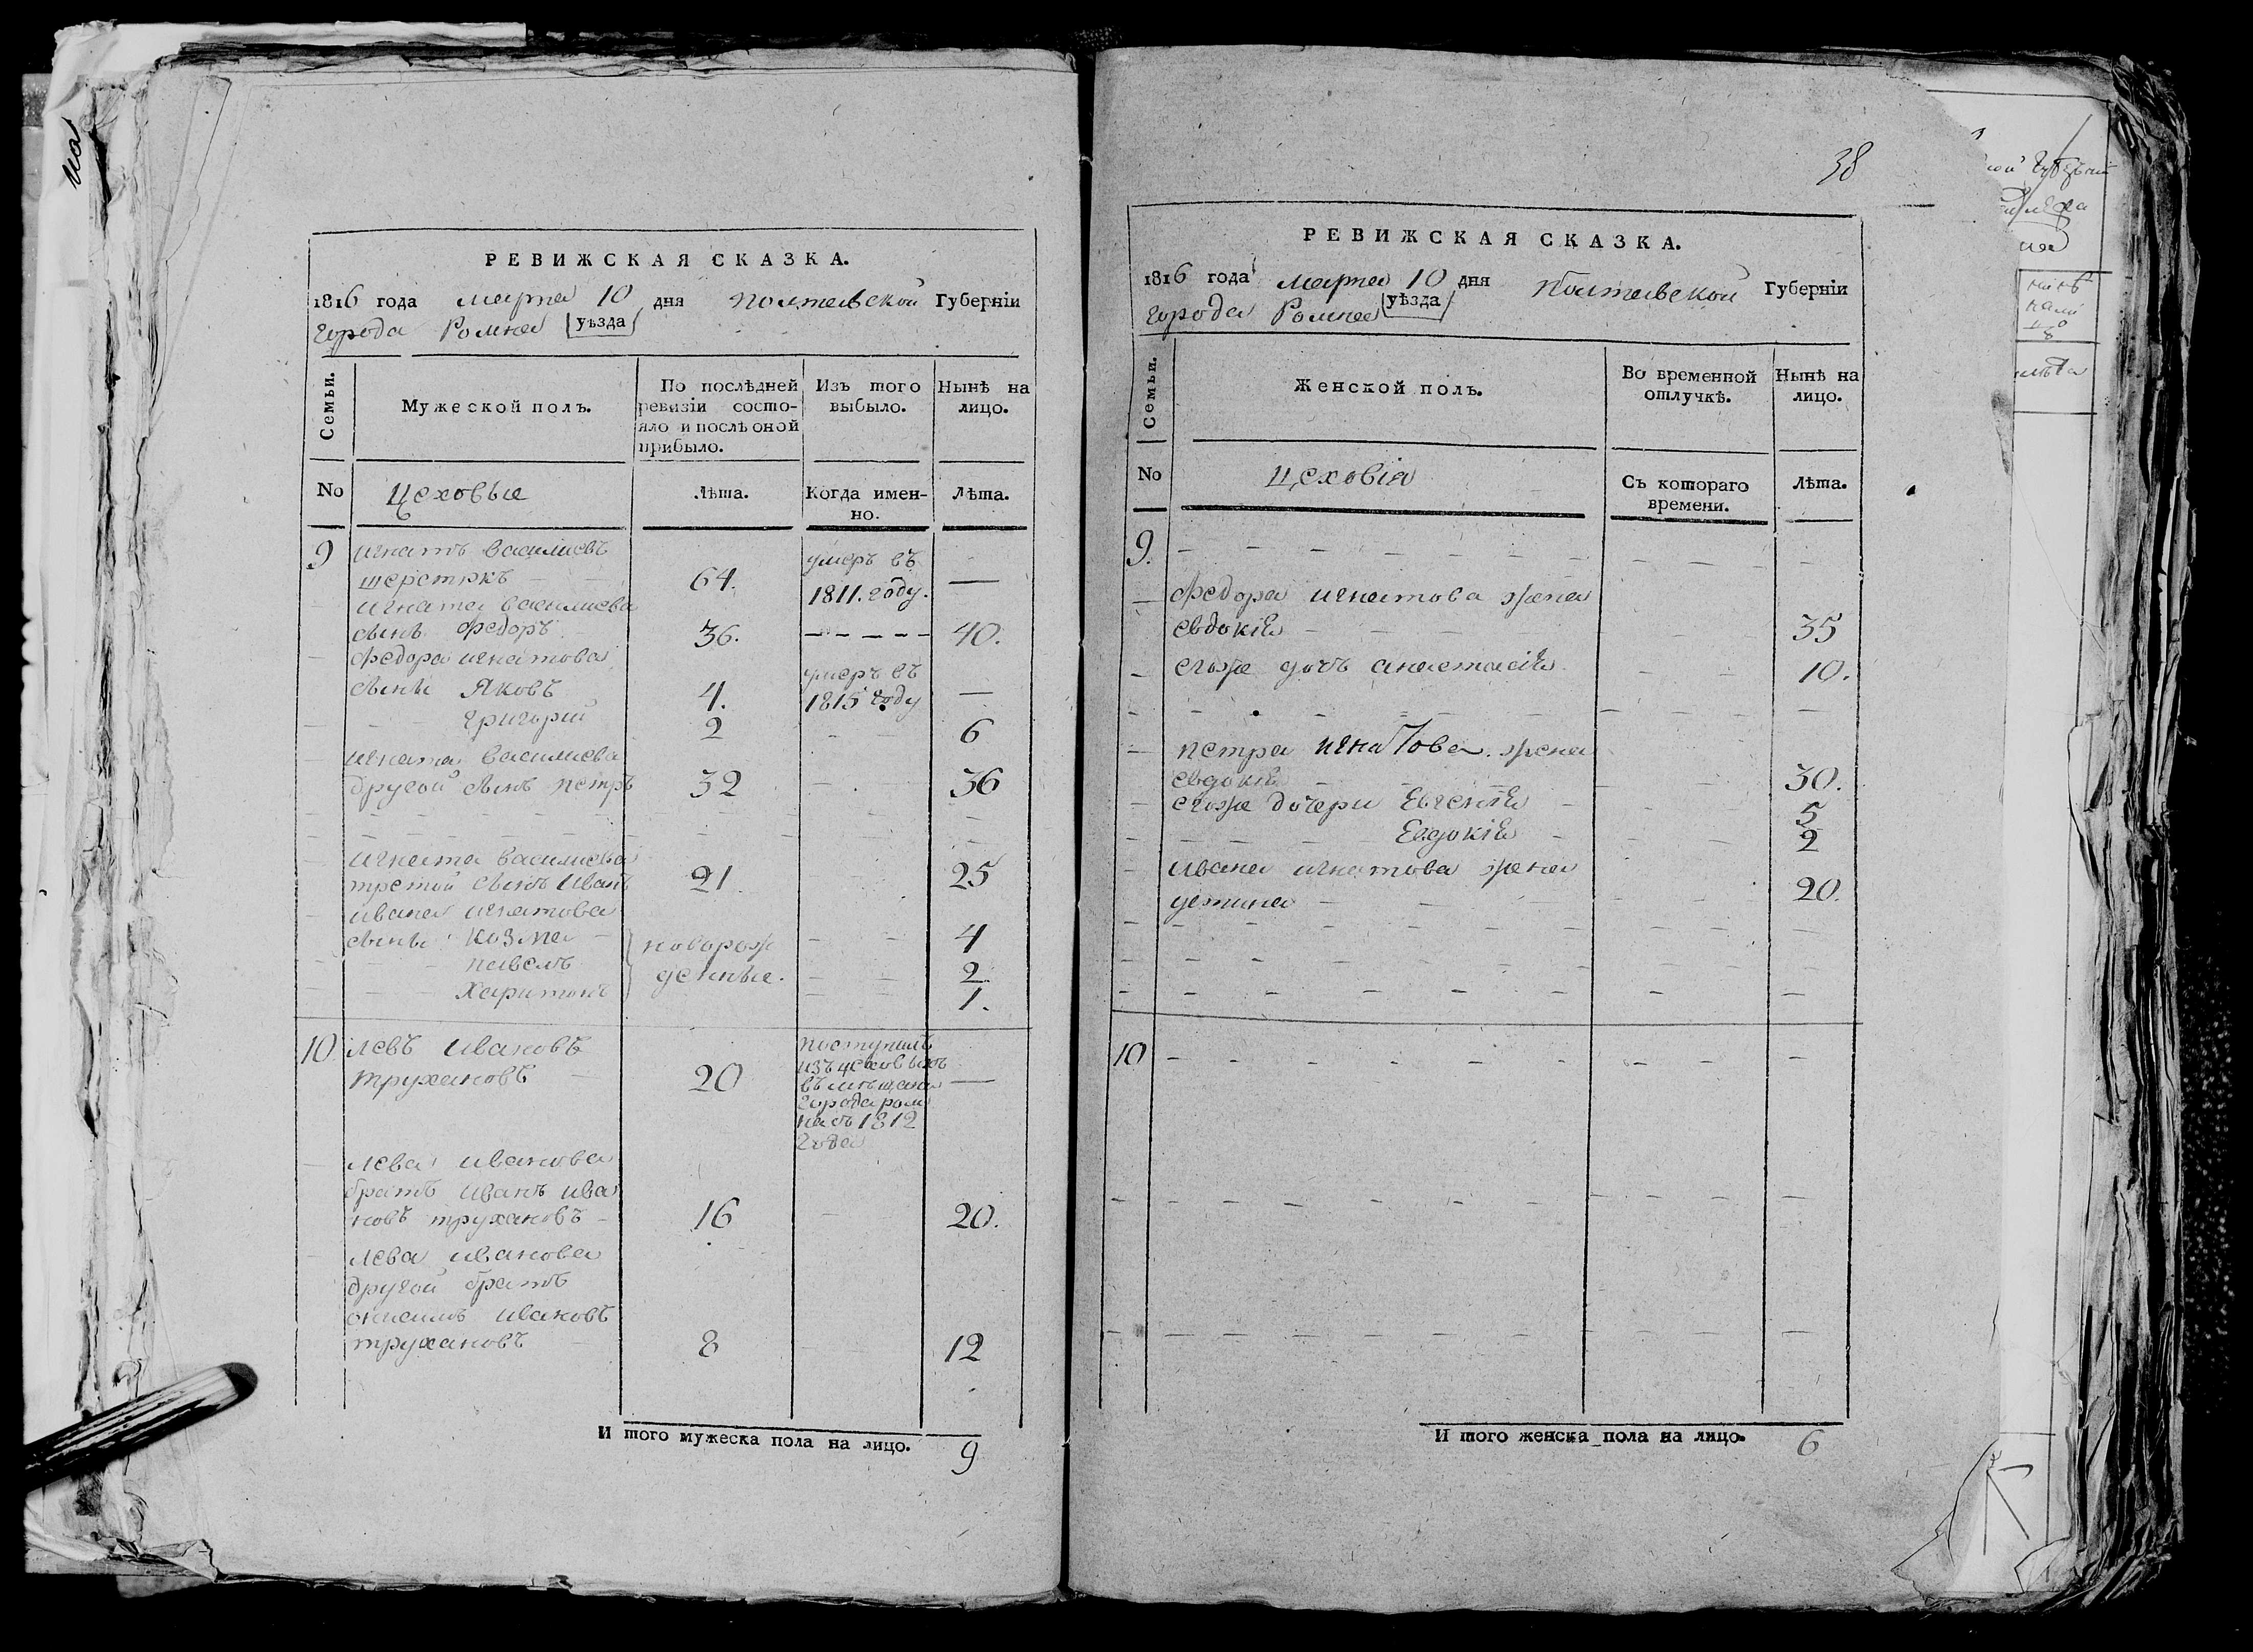 РЕВИЖСКАЯ СКАЗКА.
1816 года марта 10 дня Полтавской Губерніи
города Ромна уѣзда
Семьи.
Мужеской полъ.
По послѣдней ревизіи состо-
яло и послѣ оной
прибыло.
Изъ того
выбыло.
Нынѣ на
лицо.
No
Цеховые
Лѣта.
Когда имен-
но.
Лѣта.
9 игнатъ василиевъ
шерстюкъ 64. умеръ въ 1811. году. —
игната василиева
сынъ Федоръ 36. 40.
Федора игнатова
сыны Яковъ 4. умеръ въ 1815 году —
григорий 2 6
игната василиева
другой сынъ петръ 32 36
игната василиева
третий сынъ иванъ 21 25
ивана игнатова
сыны козма 4
павелъ 2
Харитонъ 1.
новорож
денные.
10 левъ ивановъ
трухановъ 20 —
поступилъ
изъ цеховыхъ
въ мѣщана
города ром
на съ 1812
года
лева иванова
братъ иванъ ива
новъ трухановъ 16 20.
лева иванова
другой братъ
онисимъ ивановъ
трухановъ 8 12
И того мужеска пола на лицо. 9
38
РЕВИЖСКАЯ СКАЗКА.
1816 года марта 10 дня Полтавской Губерніи
города Ромна уѣзда
Семьи.
Женской полъ.
Во временной
отлучкѣ.
Нынѣ на
лицо.
No
цеховія
Съ котораго
времени.
Лѣта.
9.
Федора игнатова жена
евдокія 35
егоже дочъ анастасія 10.
петра игнатова жена
евдокія 30.
егоже дочери Евгенія 5
Евдокія 2
ивана игнатова жена
устина 20.
10
И того женска пола на лицо. 6